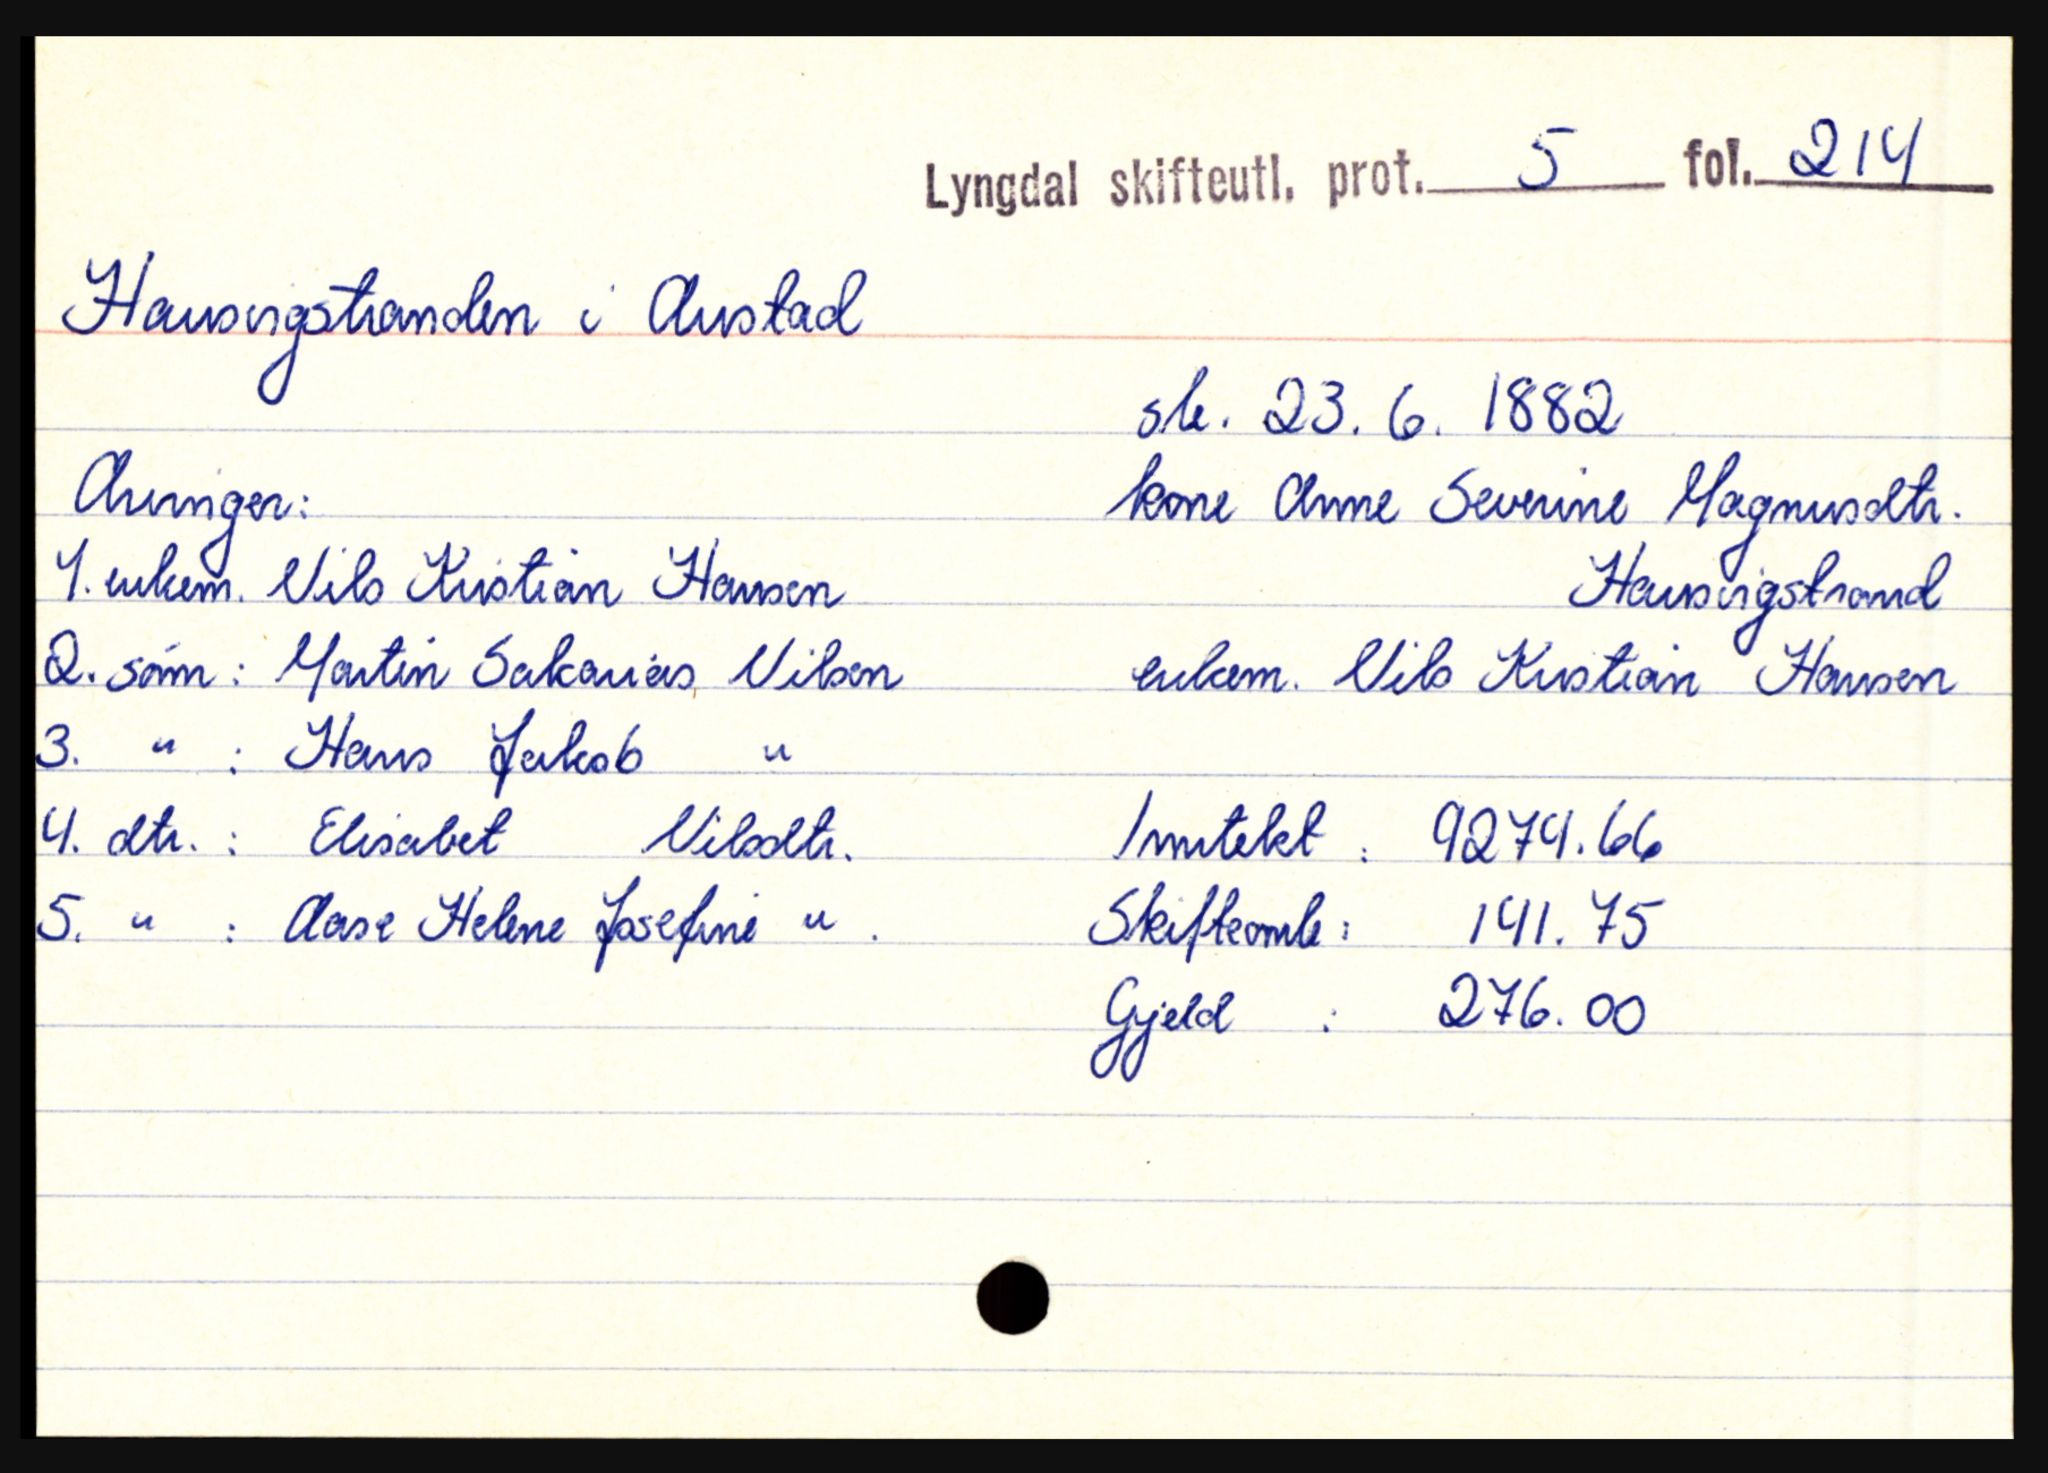 Lyngdal skifteutl. prot. 5 fol. 214
Hausvigstranden i Austad
sk. 23. 6. 1882
Arvinger:
kone Anne Severine Magnusdtr.
Hausvigstrand
1. enkem. Nils Kristian Hansen
enkem. Nils Kristian Hansen
2. sönn: Martin Sakarias Nilsen
3. " : Hans Jakob "
4. dtr. : Elisabet Nilsdtr.
5. " : Aase Helene Josefine " .
Inntekt : 9274.66
Skifteomk: 141.75
Gjeld : 276.00